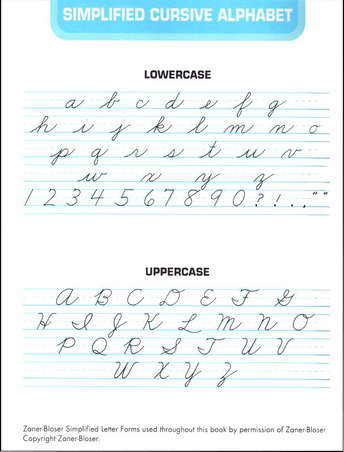 SIMPLIFIED CURSIVE ALPHABET
LOWERCASE
a b c d e f g
h i j k l m n o
p q r s t u v
w x y z
1 2 3 4 5 6 7 8 9 0 ? ! . , " "
UPPERCASE
A B C D E F G
H I J K L M N O
P Q R S T U V
W X Y Z
Zaner-Bloser Simplified Letter Forms used throughout this book by permission of Zaner-Bloser
Copyright Zaner-Bloser.